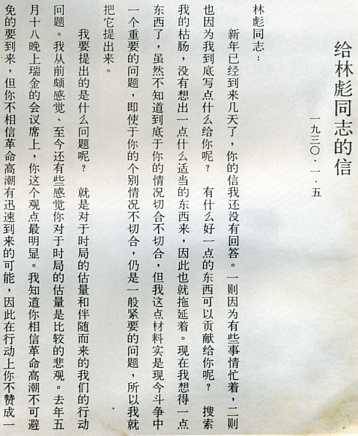 给林彪同志的信
一九三〇·一·五
林彪同志：
新年已经到来几天了，你的信我还没有回答。一则因为有些事情忙着，二则
也因为我到底写点什么给你呢？有什么好一点的东西可以贡献给你呢？搜索
我的枯肠，没有想出一点什么适当的东西来，因此也就拖延着。现在我想得一点
东西了，虽然不知道到底于你的情况切合不切合，但我这点材料实是现今斗争中
一个重要的问题，即使于你的个别情况不切合，仍是一般紧要的问题，所以我就
把它提出来。
我要提出的是什么问题呢？就是对于时局的估量和伴随而来的我们的行动
问题。我从前颇感觉、至今还有些感觉你对于时局的估量是比较的悲观。去年五
月十八晚上瑞金的会议席上，你这个观点最明显。我知道你相信革命高潮不可避
免的要到来，但你不相信革命高潮有迅速到来的可能，因此在行动上你不赞成一